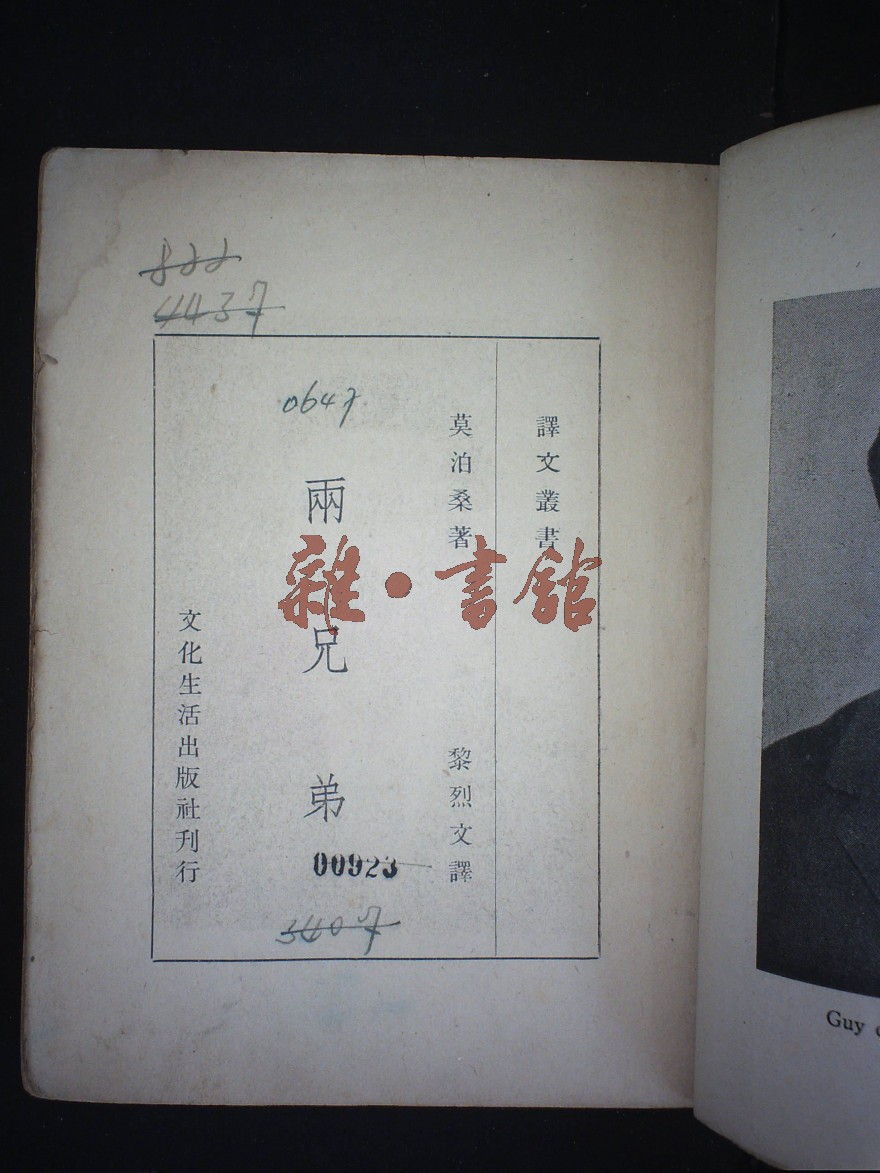 822
4437
譯文叢書
莫泊桑著
黎烈文譯
0647
兩兄弟
00923
3407
文化生活出版社刊行
雜·書館
Guy